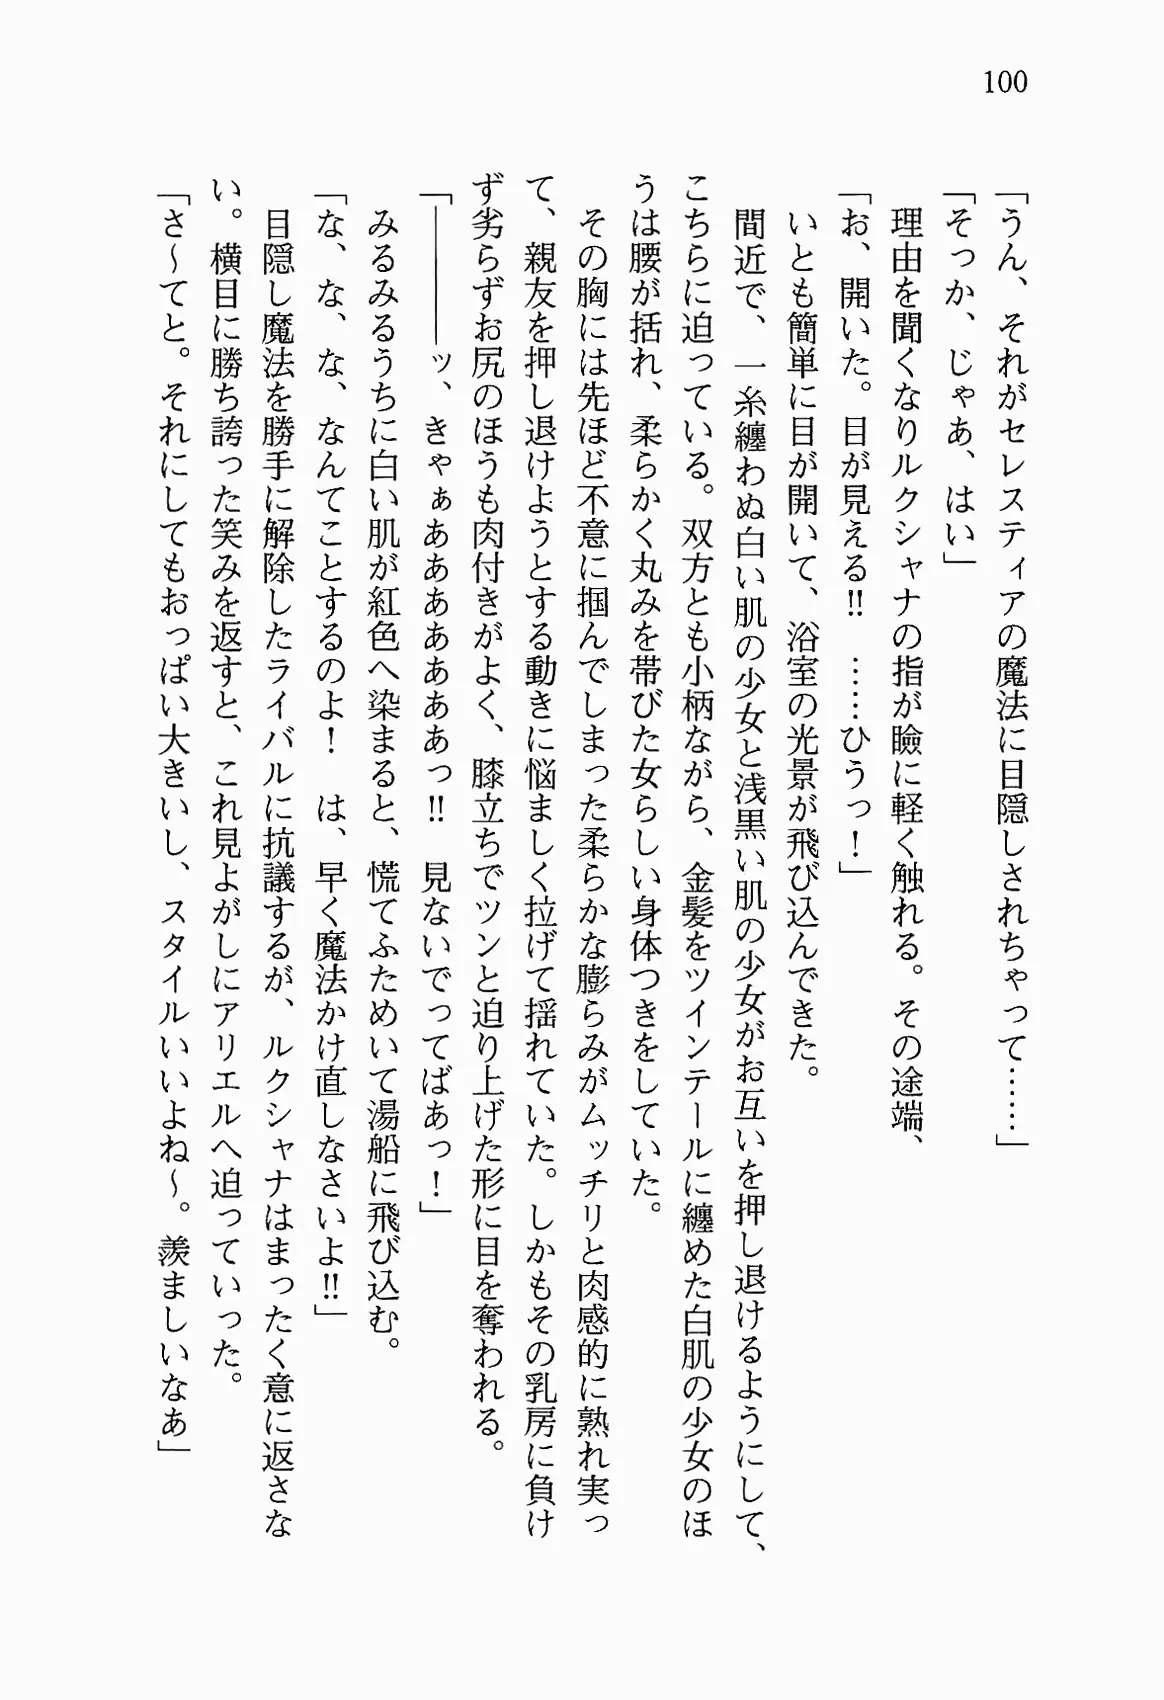 100
「うん、それがセレスティアの魔法に目隠しされちゃって……」
「そっか、じゃあ、はい」
理由を聞くなりルクシャナの指が瞼に軽く触れる。その途端、
「お、開いた。目が見える!! ……ひうっ！」
いとも簡単に目が開いて、浴室の光景が飛び込んできた。
間近で、一糸纏わぬ白い肌の少女と浅黒い肌の少女がお互いを押し退けるようにして、
こちらに迫っている。双方とも小柄ながら、金髪をツインテールに纏めた白肌の少女のほ
うは腰が括れ、柔らかく丸みを帯びた女らしい身体つきをしていた。
その胸には先ほど不意に掴んでしまった柔らかな膨らみがムッチリと肉感的に熟れ実っ
て、親友を押し退けようとする動きに悩ましく拉げて揺れていた。しかもその乳房に負け
ず劣らずお尻のほうも肉付きがよく、膝立ちでツンと迫り上げた形に目を奪われる。
「――――ッ、きゃぁああああああっ!! 見ないでってばあっ！」
みるみるうちに白い肌が紅色へ染まると、慌てふためいて湯船に飛び込む。
「な、な、な、なんてことするのよ！　は、早く魔法かけ直しなさいよ!!」
目隠し魔法を勝手に解除したライバルに抗議するが、ルクシャナはまったく意に返さな
い。横目に勝ち誇った笑みを返すと、これ見よがしにアリエルへ迫っていった。
「さ～てと。それにしてもおっぱい大きいし、スタイルいいよね～。羨ましいなあ」